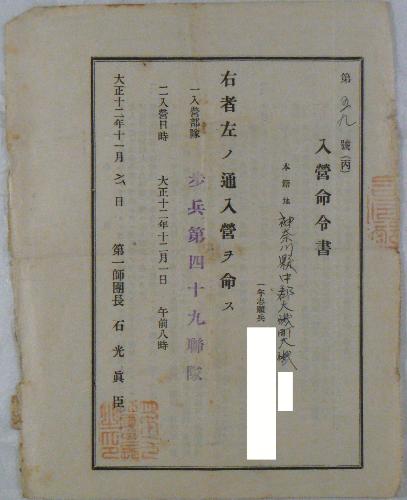 第五九號(丙)
入營命令書
本籍地 神奈川縣中郡大磯町大磯
一年志願兵
右者左ノ通入營ヲ命ス
一入營部隊 步兵第四十九聯隊
二入營日時 大正十二年十二月一日 午前八時
大正十二年十一月 日
第一師團長 石光眞臣